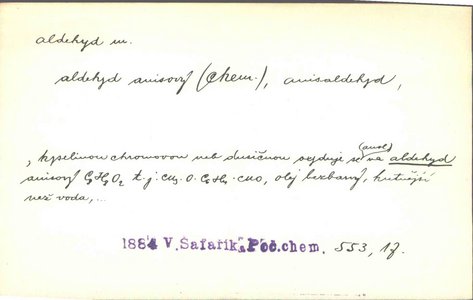 aldehyd m.
aldehyd anisový (Chem.), anisaldehyd,
(anol)
, kyselinou chromovou neb dusičnou oxyduje se na aldehyd
anisový C₈H₈O₂ t.j. CH₃·O·C₆H₄·CHO, olej bezbarvý, hutnější
než voda,...
1884 V.Šafařík Poč.chem. 553, 17.